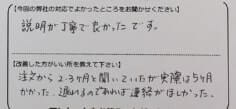 【今回の弊社の対応でよかったところをお聞かせください】
説明が丁寧で良かったです。
【改善した方がいい所を教えて下さい】
注文から2.3ヶ月と聞いていたが実際は5ヶ月
かかった。遅れるのであれば連絡がほしかった。